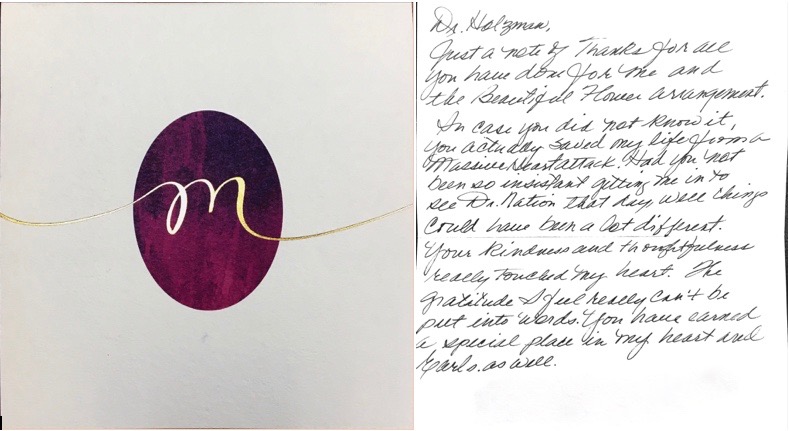 m
Dr. Holzman,
Just a note of Thanks for all
you have done for me and
the Beautiful Flower arrangement.
In case you did not know it,
you actually saved my life from a
Massive Heart attack. Had you not
been so insistant getting me in to
see Dr. Nation that day well things
could have been a lot different.
Your kindness and thoughtfulness
really touched my heart. The
gratitude I feel really can't be
put into words. You have earned
a special place in my heart and
Earls. as well.